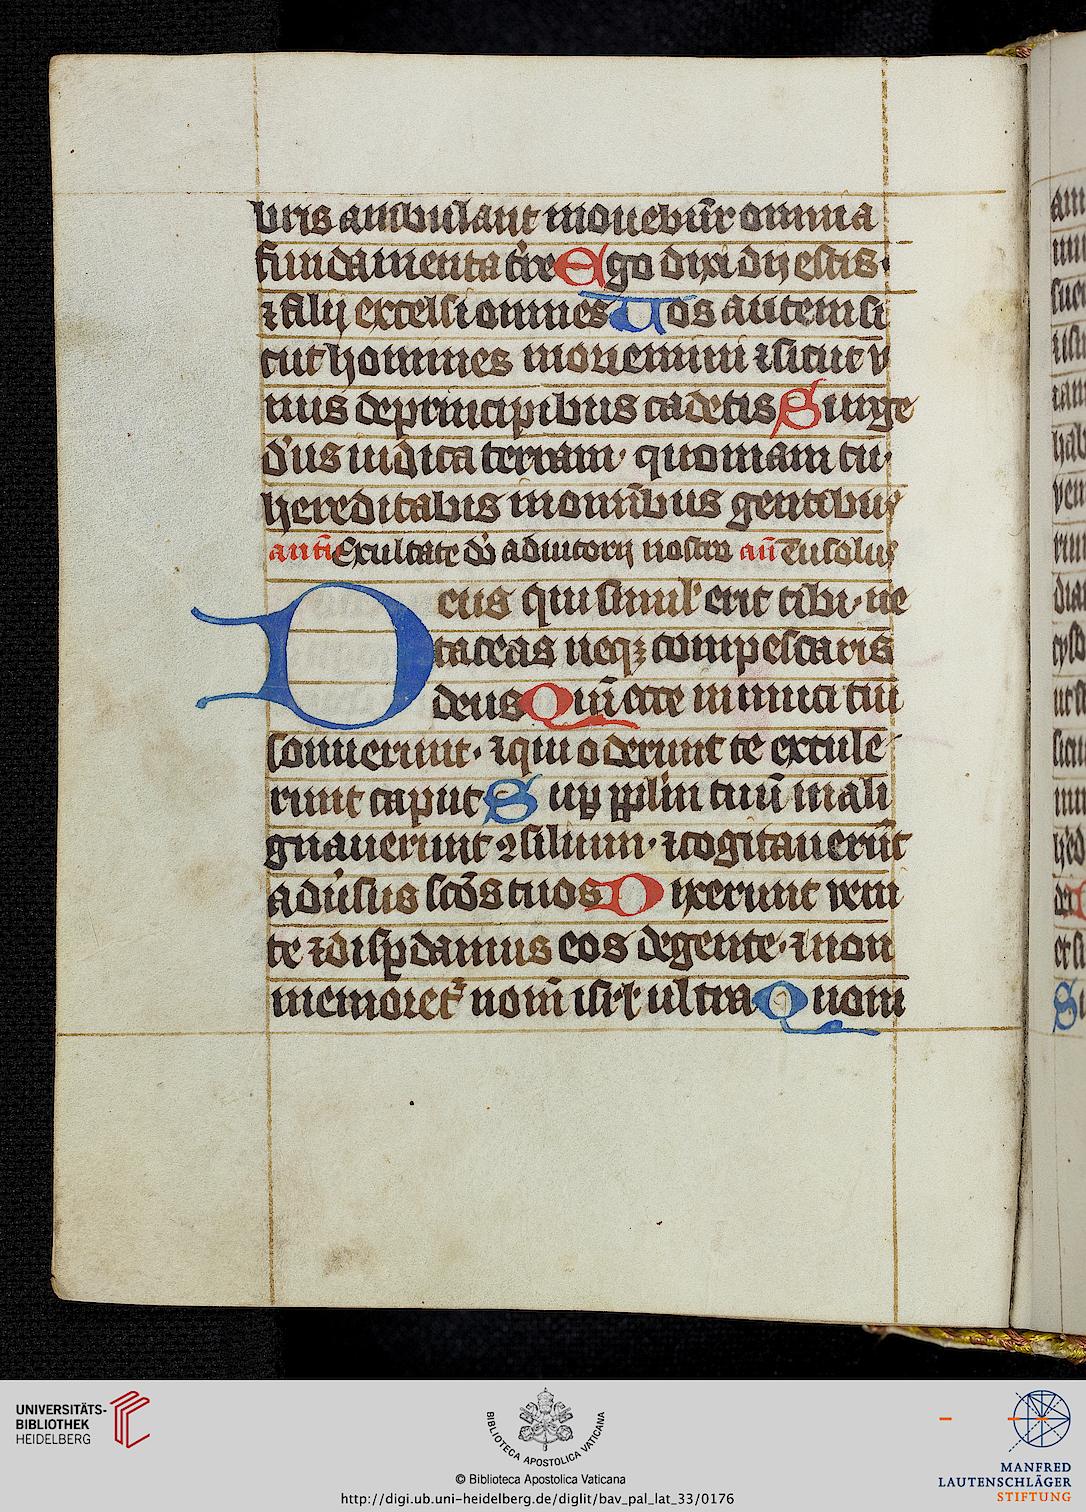 bris ambulant mouebūr omnia
fundamenta t're Ego dixi dij estis·
⁊ filij excelsi omnes Uos autem si
cut homines moriemini ⁊ sicut v
nus de principibus cadetis Surge
d'us iudica terram· quoniam tu·
hereditabis in omībus gentibus
antī Exultate dō adiutorij nostro an̄ Tu solus
Deus qui simil' erit tibi· ne
taceas neqꝫ compescaris
deus Qm̄ ecce inimici tui
sonuerunt· ⁊ qui oderunt te extule
runt caput Sup ppl'm tuū mali
gnauerunt ꝯsilium· ⁊ cogitauerūt
adūsus scōs tuos Dixerunt veni
te ⁊ disꝑdamus eos de gente· ⁊ non
memoret᷑ nom̄ isr̄l ultra Quom̄
UNIVERSITÄTS-
BIBLIOTHEK
HEIDELBERG
BIBLIOTECA APOSTOLICA VATICANA
© Biblioteca Apostolica Vaticana
http://digi.ub.uni-heidelberg.de/diglit/bav_pal_lat_33/0176
MANFRED
LAUTENSCHLÄGER
STIFTUNG